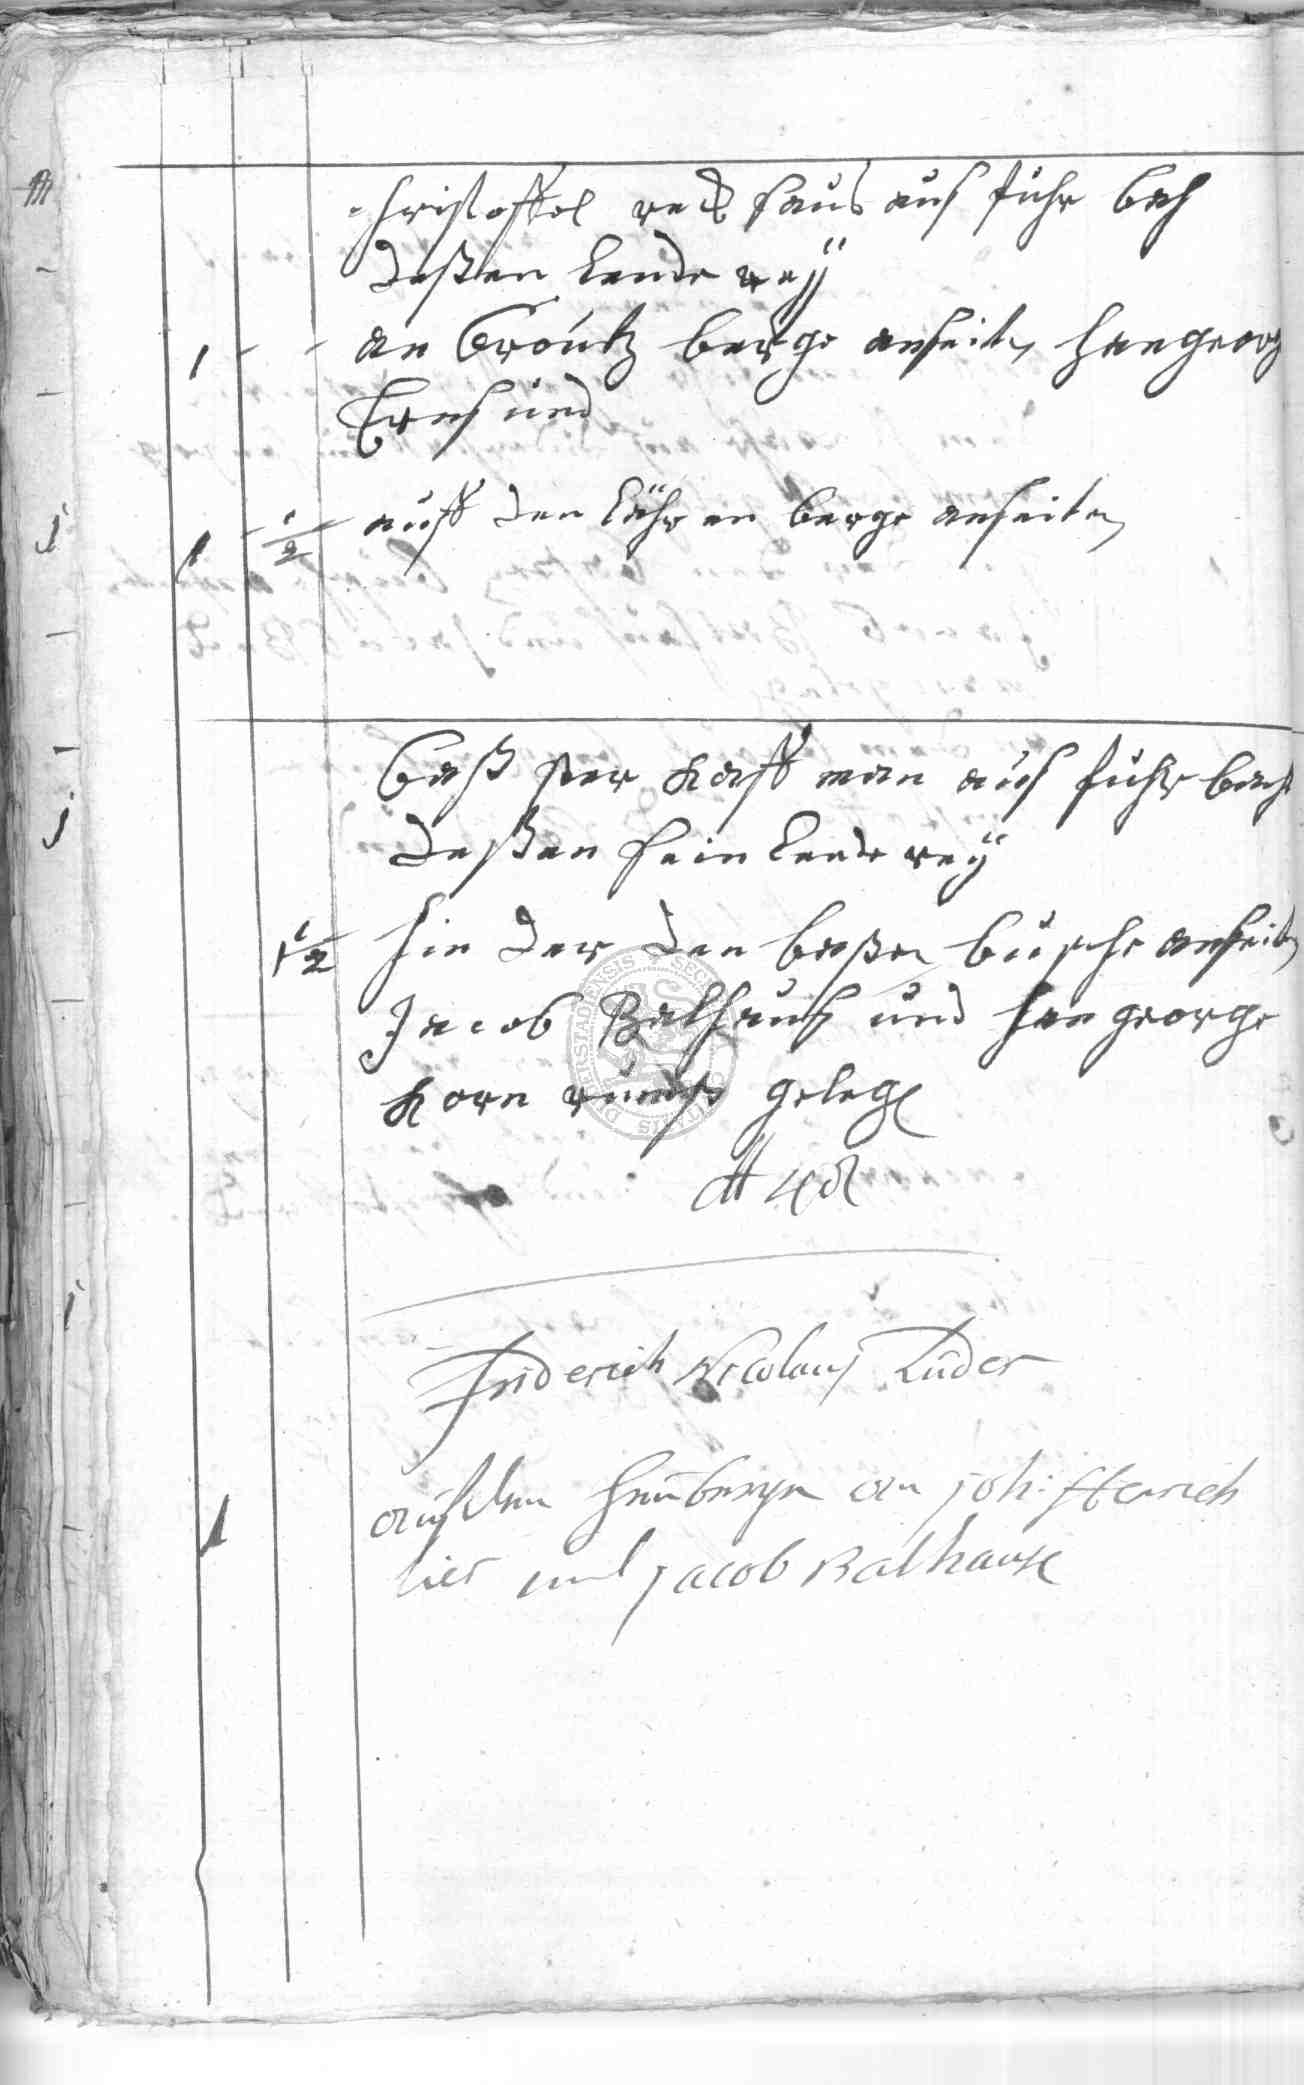 Christoffel reckhaus aus fuhrbach
deßen Lendereÿ
1 - - an Creutz berge anseiten Hangeorg
Ernst und
1 1/2 auff den Lühren berge anseiten
Casper Kaffman aus fuhrbach
deßen sein Lenderey
1 1/2 hin der den busche anseiten
Jacob Balhaus und Hangeorge
Korn gelege
Friderich Nicolaus Lüder
1 auf dem an Joh: Henrich
und Jacob Balhause